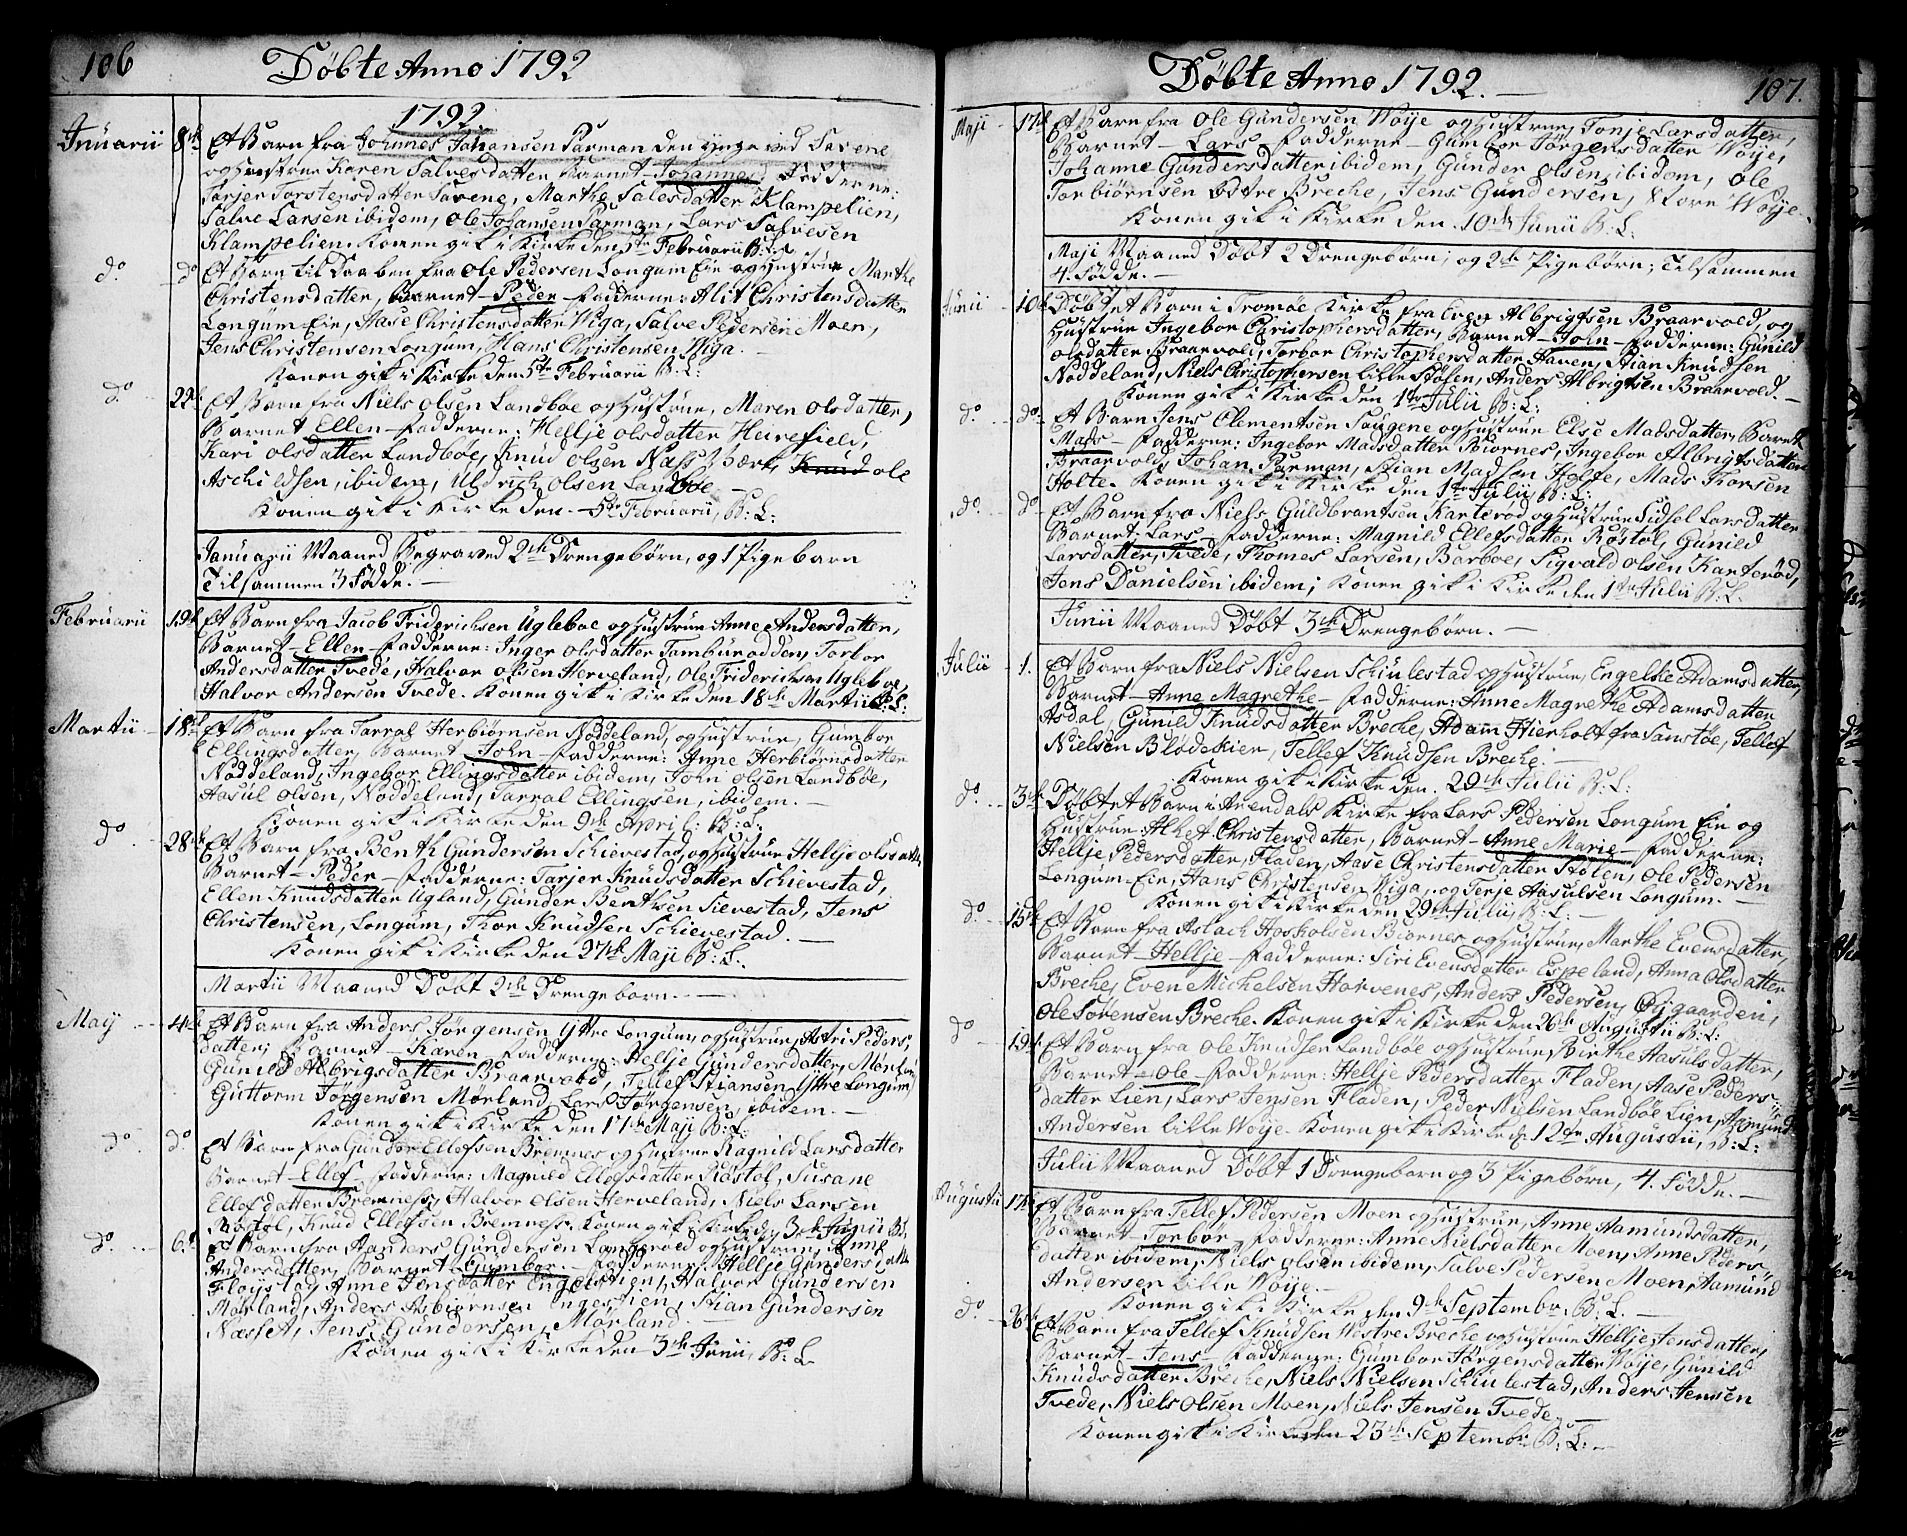 106 Döbte Anno 1792
1792
Januarii 8de Et Barn fra Johannes Johansen Parman den ynge ved Savene
og Hustrue Karen Salvesdatter Barnet Johannes Fadderne:
Tarjer Torstensdatter Savene, Marthe Salvesdatter Klampelien,
Salve Larsen ibidem, Ole Johansen Parman, Lars Salvesen
Klampelien. Konen gik i Kirke den 5te Februarii B: L:
do do Et Barn til Daaben fra Ole Pedersen Longum Eie og Hustrue Marthe
Christensdatter, Barnet Peder Fadderne: Alit Christensdatter
Longum Eie, Aase Christensdatter Wiga, Salve Pedersen Moen,
Jens Christensen Longum, Hans Christensen Wiga. —
Konen gik i Kirke den 5te Februarii B: L:
do 22de Et Barn fra Niels Olsen Landböe og Hustrue, Maren Olsdatter,
Barnet Ellen Fadderne: Hellje Olsdatter Heirefield,
Kari Olsdatter Landböe, Knud Olsen Næss Værk, Knud Ole
Aschildsen, ibidem, Uldrich Olsen Landböe —
Konen gik i Kirke den 5te Februarii, B: L:
Januarii Maaned Begraved 2de Drengebörn, og 1 Pigebarn
Tilsammen 3 Födde. —
Februarii 19de Et Barn fra Jacob Friderichsen Ugleboe og Hustrue Anne Andersdatter,
Barnet Ellen Fadderne: Inger Olsdatter Tamburodden, Torbor
Andersdatter Tvede, Halvor Olsen Herveland, Ole Friderichsen Ugleboe,
Halvor Andersen Tvede. Konen gik i Kirke den 18de Martii B: L:
Martii 18de Et Barn fra Tarral Herbiörnsen Nöddeland, og Hustrue, Gumbor
Ellingsdatter, Barnet John Fadderne: Anne Herbiörnsdatter
Nöddeland, Ingebor Ellingsdatter ibidem, John Olsen Landböe,
Aasul Olsen, Nöddeland, Tarral Ellingsen, ibidem. —
Konen gik i Kirke den 9de April: B: L:
do 28de Et Barn fra Benth Gundersen Schievestad, og Hustrue Hellje Olsdatter,
Barnet Peder Fadderne: Tarjer Knudsdatter Schievestad,
Ellen Knudsdatter Ugland, Gunder Bentsen Sievestad, Jens
Christensen, Longum, Thor Knudsen Schievestad. —
Konen gik i Kirke den 27de Maji B: L:
Martii Maaned Döbt 2de Drengebörn. —
May 4de Et Barn fra Anders Jörgensen Yttre Longum, og Hustrue, Astri Peders-
datter; Barnet Karen Fadderne: Hellje Gundersdatter, Mörland
Gunild Albrigsdatter Braarvold, Tellef Stiansen Yttre Longum
Guttorm Jörgensen Mörland, Lars Jörgensen, ibidem. —
Konen gik i Kirke den 17de Maji B: L:
do do Et Barn fra Gunder Ellefsen Bremnes og Hustrue Ragnild Larsdatter
Barnet Ellef Fadderne: Magnild Ellefsdatter Röstöl, Susane
Ellefsdatter Bremness, Halvor Olsen Herveland, Niels Larsen
Röstöl, Knud Ellefsen Bremness. Konen gik i Kirke den 3de Junii B: L:
do 6te Et Barn fra Anders Gundersen Longervold og Hustrue, Anne
Andersdatter, Barnet Gumbor. Fadderne: Hellje Gundersdatter
Flöystad, Anne Jensdatter Engelstien, Halvor Gundersen
Mörland, Anders Asbiörnsen Engestien, Stian Gundersen
Næsset, Jens Gundersen, Mörland. —
Konen gik i Kirke den 3de Junii, B: L:
Döbte Anno 1792. — 107.
Maji 17de Et Barn fra Ole Gundersen Wöije og Hustrue, Tonje Larsdatter,
Barnet Lars Fadderne Gumbor Jörgensdatter Wöije,
Johanne Gundersdatter ibidem, Gunder Olsen, ibidem, Ole
Torbiörnsen Östre Breche, Jens Gundersen, Store Wöije.
Konen gik i Kirke den 10de Junii B: L:
Maji Maaned Döbt 2 Drengebörn; og 2de Pigebörn; Tilsammen
4. Födde. —
Junii 10de Döbt et Barn i Tromöe Kirke fra Even Albrigtsen Braarvold, og
Hustrue Ingebor Christophersdatter, Barnet John Fadderne: Gunild
Olsdatter Braarvold, Torbor Christophersdatter Haven, Stian Knudsen
Nöddeland, Niels Christophersen Lille Stölen, Anders Albrigtsen Braarvold. —
Konen gik i Kirke den 1te Julii B: L:
do do Et Barn Jens Clementsen Saugene og Hustrue Else Madsdatter, Barnet
Mads Fadderne: Ingebor Madsdatter Biörnes, Ingebor Albrigtsdatter
Braarvold, Johan Parman, Stian Madsen Holte, Mads Thorsen
Holte. Konen gik i Kirke den 1te Julii B: L:
do do Et Barn fra Niels Guldbrantsen Karteröd og Hustrue Sidsel Larsdatter
Barnet Lars Fadderne: Magnild Ellefsdatter Röstöl, Gunild
Larsdatter, Tvede, Thomes Larsen, Barboe, Sigvald Olsen Karteröd,
Jens Danielsen ibidem; Konen gik i Kirke den 1te Julii B: L:
Junii Maaned Döbt 3de Drengebörn. —
Julii 1. Et Barn fra Niels Nielsen Schiulestad og Hustrue, Engelke Adamsdatter,
Barnet Anne Magrethe Fadderne: Anne Magrethe Adamsdatter
Asdal, Gunild Knudsdatter Breche, Adam Hierholt fra Sanstöe, Tellef
Nielsen Blödekier, Tellef Knudsen Breche. —
Konen gik i Kirke den 29de Julii B: L:
do 3de Döbt et Barn i Arendals Kirke fra Lars Pedersen Longum Eie og
Hustrue Alhet Christensdatter, Barnet Anne Marie Fadderne:
Hellje Pedersdatter, Fladen, Aase Christensdatter Stölen, Ole Pedersen
Longum Eie, Hans Christensen Wiga, og Terje Aasulsen Longum. —
Konen gik i Kirke den 29de Julii, B: L: —
do 15de Et Barn fra Aslach Hoskolsen Biornes og Hustrue, Marthe Evensdatter,
Barnet Hellje Fadderne: Siri Evensdatter Espeland, Anna Olsdatter
Breche, Even Michelsen Harvenes, Anders Pedersen, Öygaarden,
Ole Sörensen Breche. Konen gik i Kirke den 26de Augustii B: L:
do 19de Et Barn fra Ole Knudsen Landböe og Hustrue, Birthe Aasulsdatter,
Barnet Ole Fadderne: Hellje Pedersdatter Fladen, Aase Peders-
datter Lien, Lars Jensen Fladen, Peder Nielsen Landböe Lien, Asmund
Andersen Lille Wöije. Konen gik i Kirke d. 12te Augustii, B: L:
Julii Maaned Döbt 1 Drengebarn og 3 Pigebörn, 4. Födde. —
Augustii Et Barn fra Tellef Pedersen Moen og Hustrue, Anne Aamundsdatter,
Barnet Torbör Fadderne: Anne Nielsdatter Moen, Anne Peders-
datter ibidem, Niels Olsen ibidem, Salve Pedersen Moen, Aamund
Andersen Lille Wöije. —
Konen gik i Kirke den 9de Septembr. B: L: —
do 26de Et Barn fra Tellef Knudsen Westre Breche og Hustrue Hellje Jensdatter,
Barnet Jens Fadderne: Gumbor Jörgensdatter Wöije, Gunild
Knudsdatter Breche, Niels Nielsen Schiulestad, Anders Jensen
Tvede, Niels Olsen Moen, Niels Jensen Tvede. —
Konen gik i Kirke den 23de Septembr B: L: —